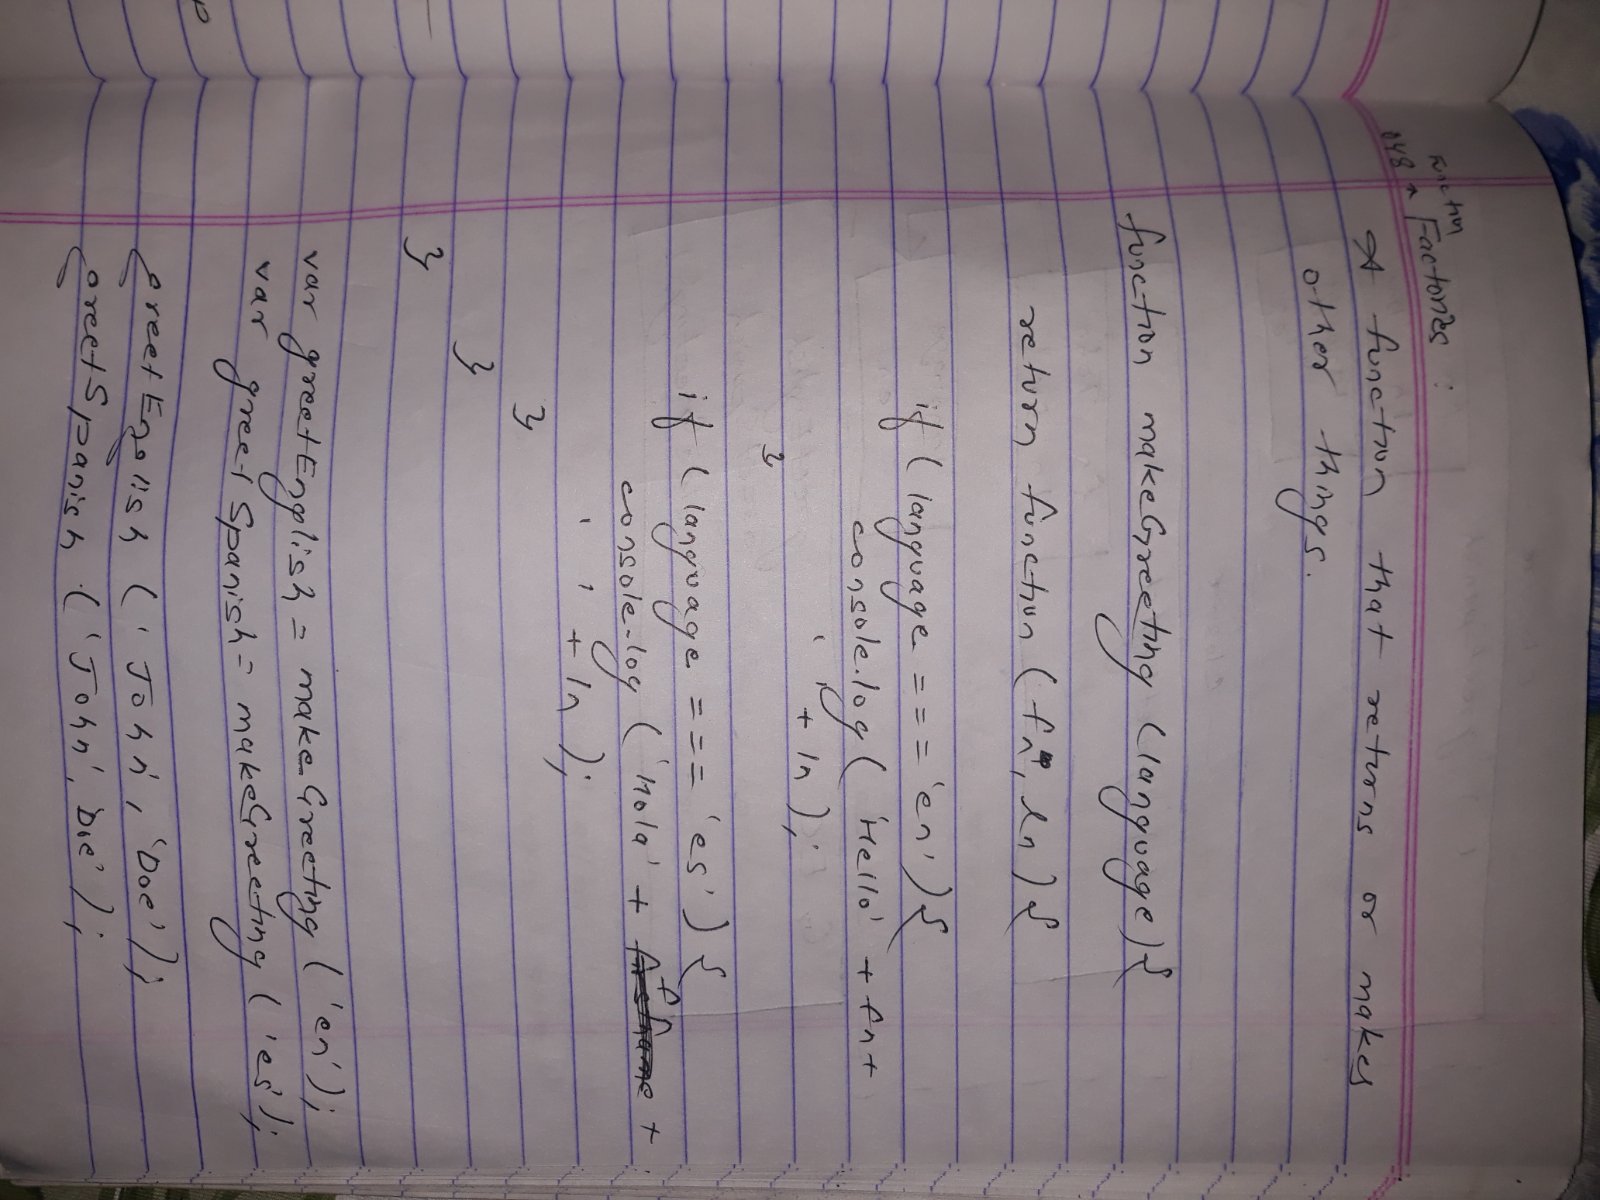 048 Function Factories :
A function that returns or makes
other things.
function makeGreeting (language){
return function (fn, ln){
if (language === 'en'){
console.log( 'Hello' + fn +
' ' + ln );
}
if (language === 'es') {
console.log ('Hola' + fn +
' ' + ln );
}
}
}
var greetEnglish = makeGreeting ( 'en');
var greetSpanish = makeGreeting ( 'es');
greetEnglish ( 'John', 'Doe');
greetSpanish ( 'John', 'Doe' );